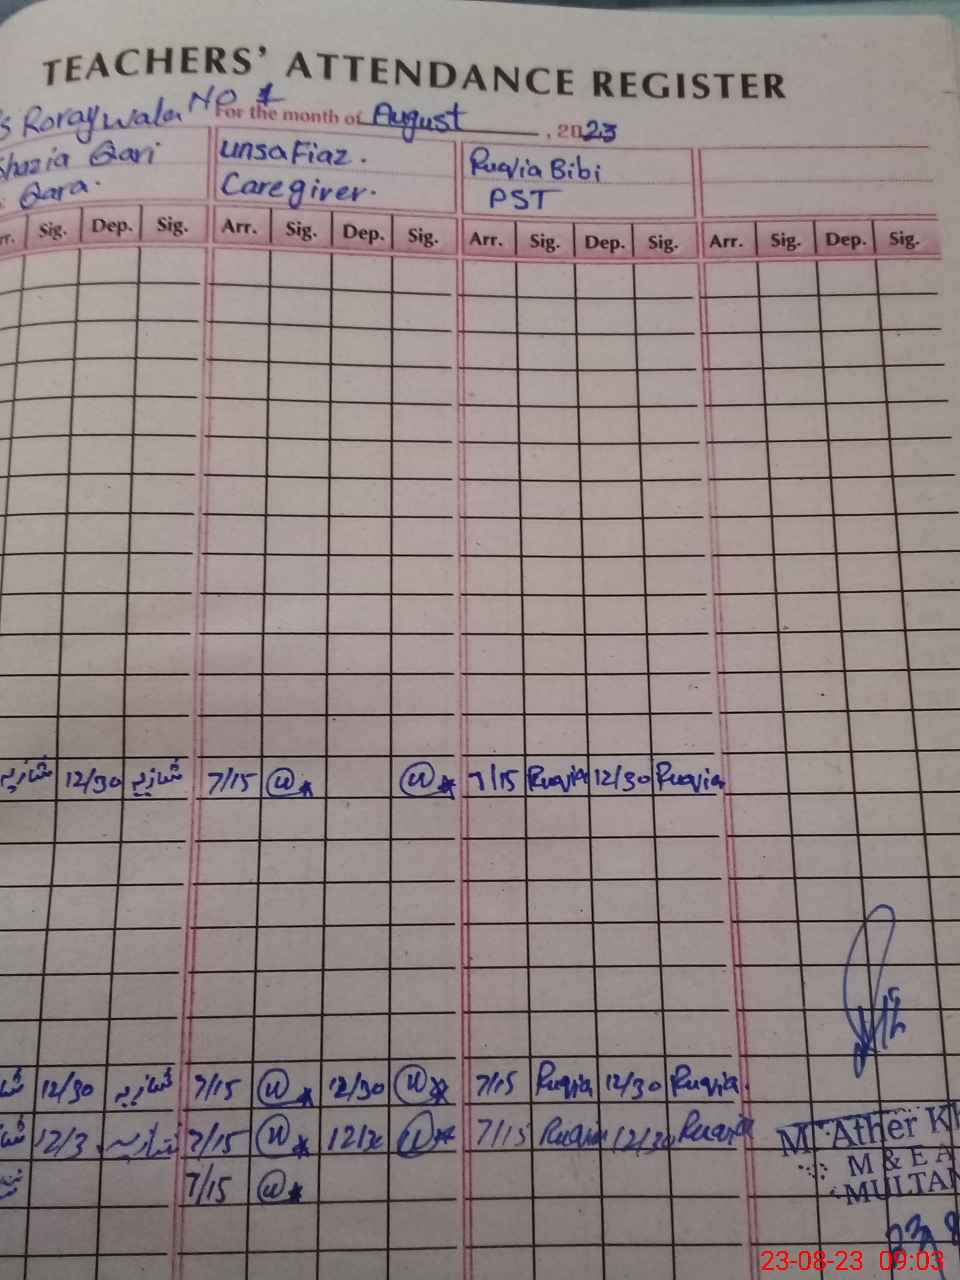 TEACHERS' ATTENDANCE REGISTER
Roraywala NO 1 For the month of August, 2023
Shazia Qari Unsa Fiaz. Ruqvia Bibi
Qara. Caregiver. PST
Sig. Dep. Sig. Arr. Sig. Dep. Sig. Arr. Sig. Dep. Sig. Arr. Sig. Dep. Sig.
شازیہ 12/30 شازیہ 7/15 u 7/15 Ruqvia 12/30 Ruqvia
u
12/30 شازیہ 7/15 u 12/30 u 7/15 Ruqvia 12/30 Ruqvia
12/3 شازیہ 7/15 u 12/30 u 7/15 Ruqvia 12/30 Ruqvia
7/15 u
M Ather Kh
M & E A
MULTAN
23-08-23 09:03